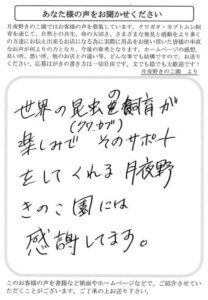 あなた様の声をお聞かせください
月夜野きのこ園ではお客様の声を募集しています。クワガタ・カブトムシ飼
育を通じて、自然との共生、命の大切さ、さまざまな発見と感動をより多く
の方達にお伝え出来るお店になる為に実際に用品をお使い頂いた皆様の率直
なお声が何よりの力となり、今後の参考となります。ホームページの感想、
良い所、悪い所、他のお店との違い、どんな事でも結構ですので、お送りく
ださい。応募はがきの書き方は一切自由です。文でも絵でも大歓迎です！
月夜野きのこ園 より
世界の昆虫の飼育が
(クワ・カブ)
楽しみで そのサポート
をしてくれる 月夜野
きのこ園には
感謝してます。
このお客様の声を書籍など紙面やホームページなどで、ご紹介させてい
ただくことがございます。ご了承の上お送り下さい。